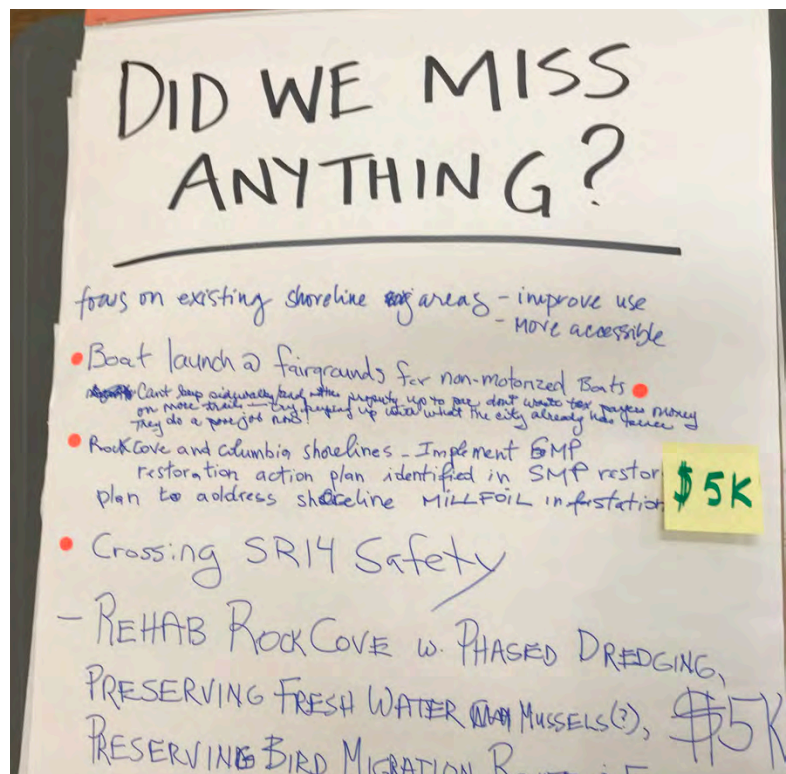 DID WE MISS
ANYTHING?
focus on existing shoreline areas - improve use
- More accessible
Boat launch @ fairgrounds for non-motorized Boats
Cant keep and other property up to par, dont waste tax payers money
on more trails - try keeping up with what the city already has
They do a poor job
Rock Cove and Columbia shorelines - Implement SMP
restoration action plan identified in SMP restor
plan to address shoreline MILLFOIL infestation
$5K
Crossing SR14 Safety
- REHAB ROCK COVE w. PHASED DREDGING,
PRESERVING FRESH WATER MUSSELS(?), $5K
PRESERVING BIRD MIGRATION